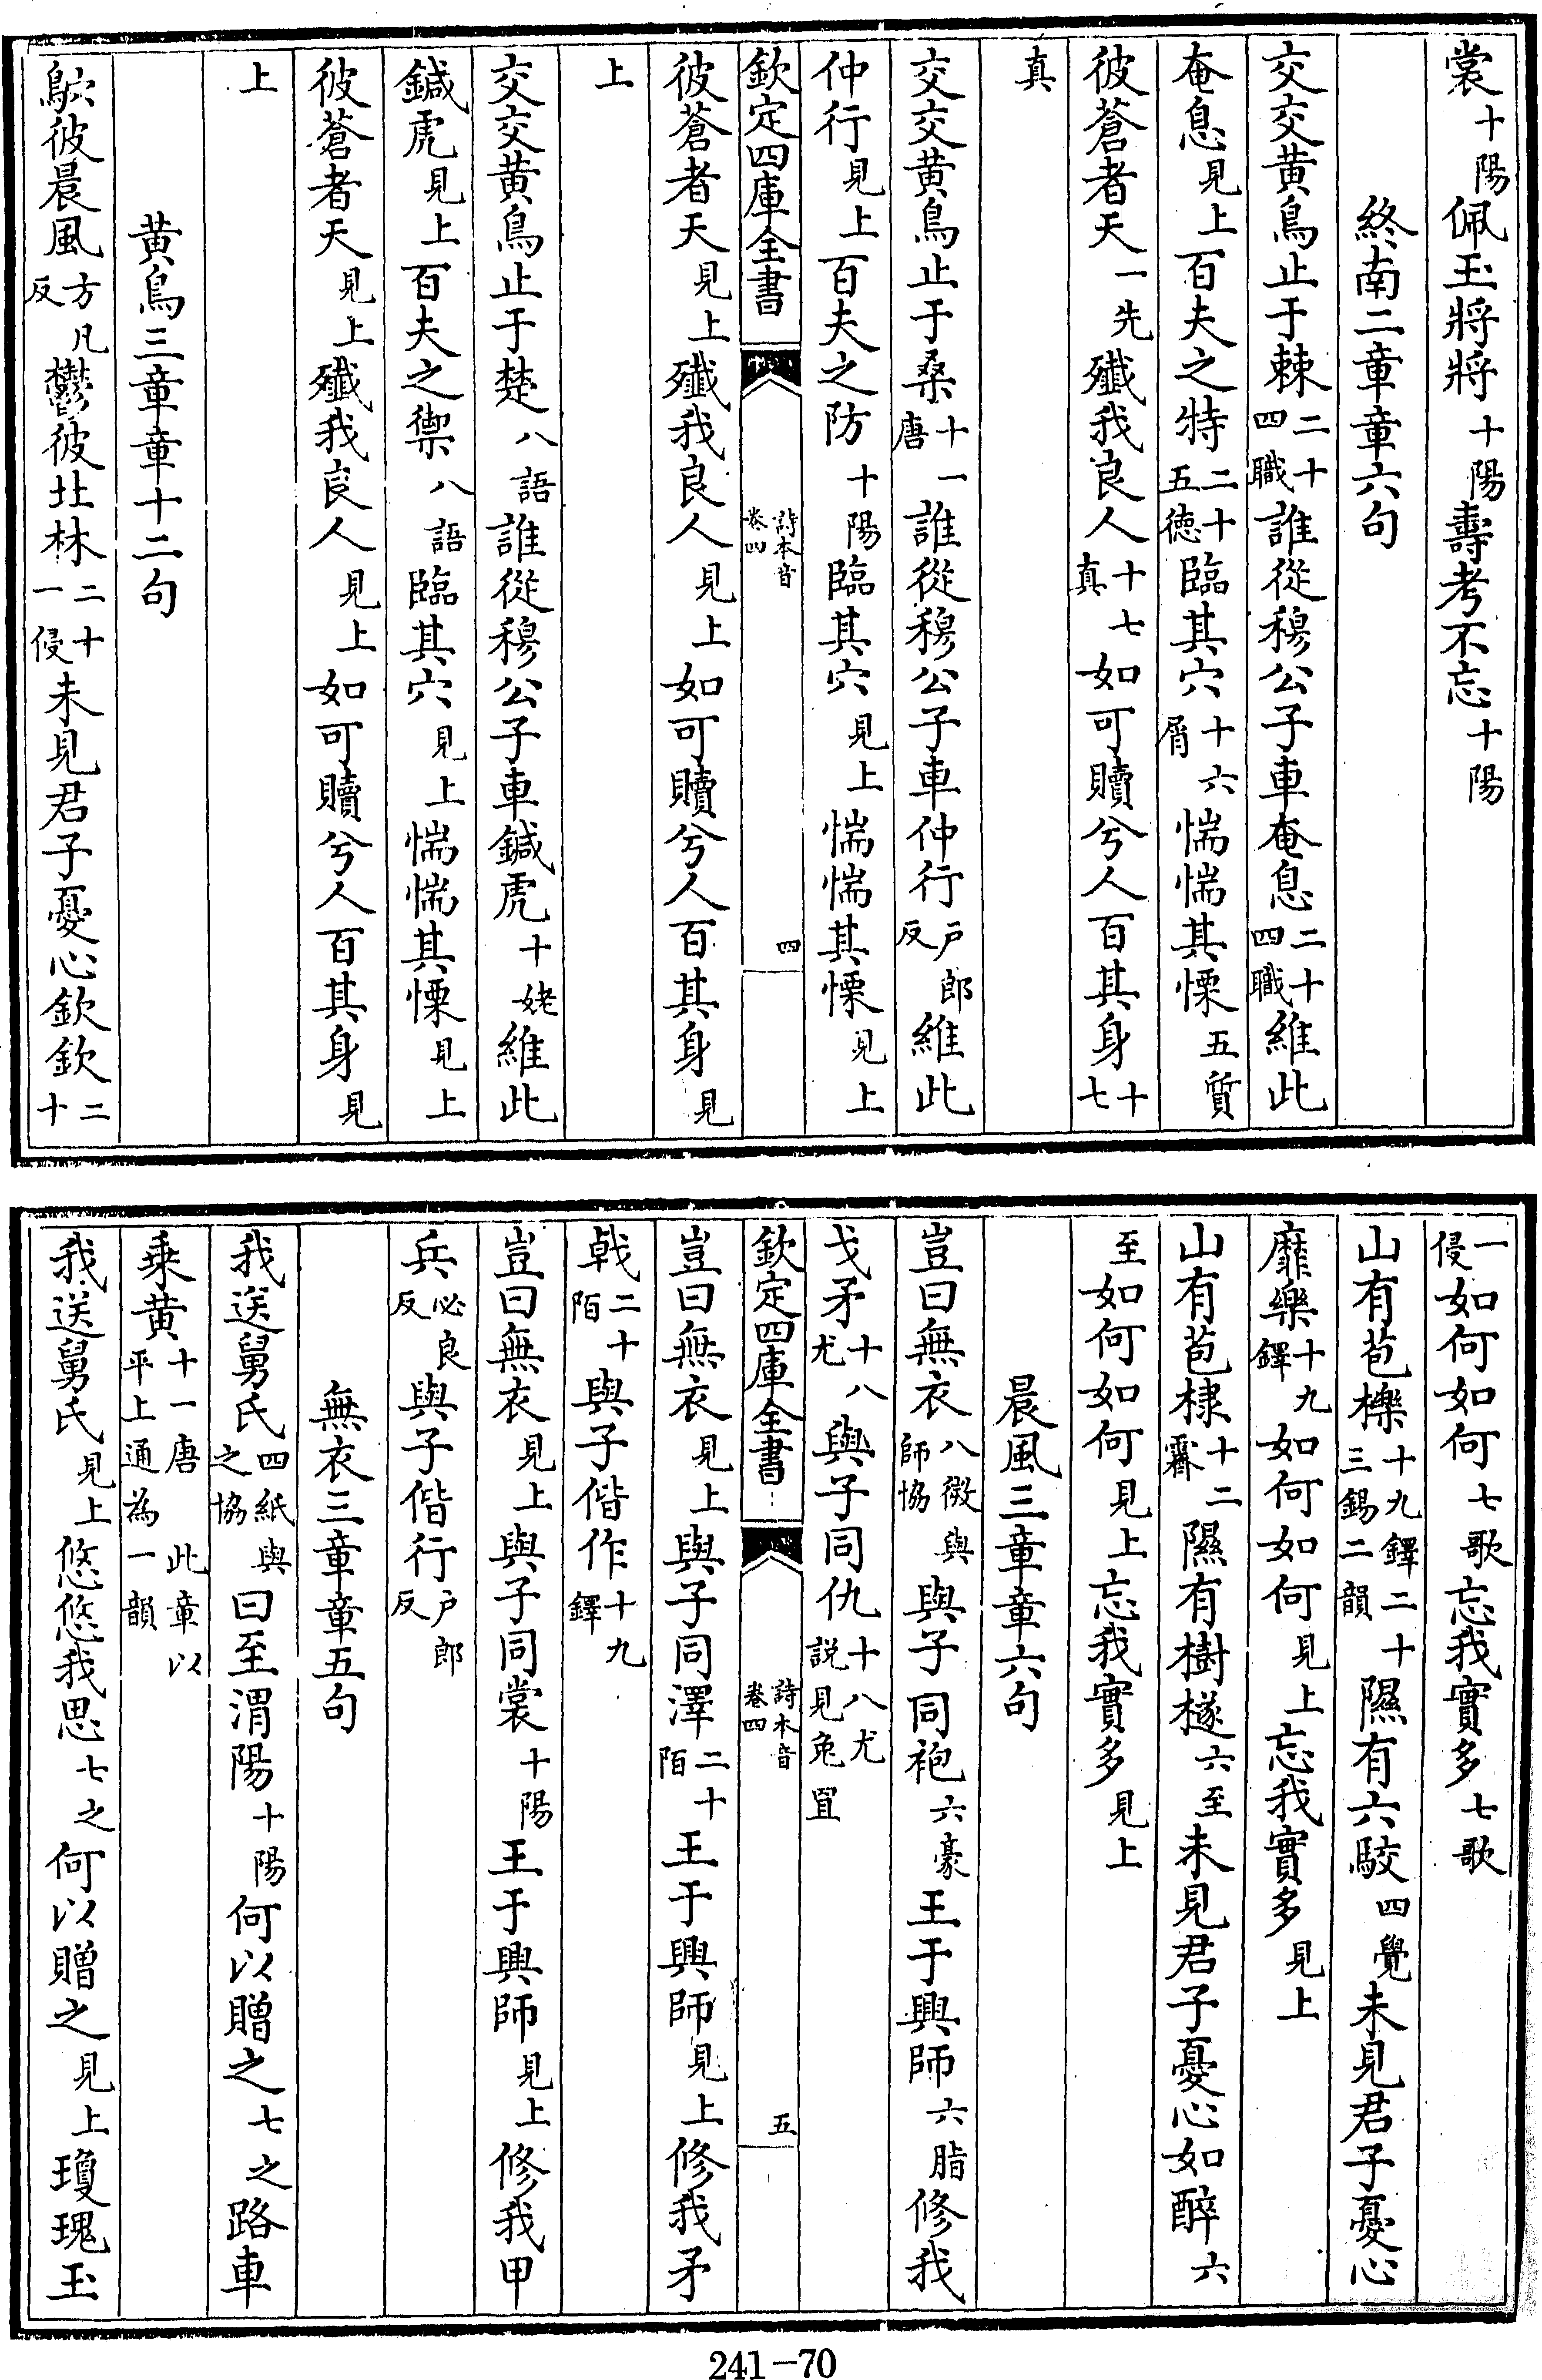 裳十陽佩玉將將十陽壽考不忘十陽
終南二章章六句
交交黄鳥止于棘二十四職誰從穆公子車奄息二十四職維此
奄息見上百夫之特二十五德臨其穴十六屑惴惴其慄五質
彼蒼者天一先殲我良人十七真如可贖兮人百其身十七
真
交交黄鳥止于桑十一唐誰從穆公子車仲行戶郎反維此
仲行見上百夫之防十陽臨其穴見上惴惴其慄見上
欽定四庫全書 詩本音卷四 四
彼蒼者天見上殲我良人見上如可贖兮人百其身見
上
交交黄鳥止于楚八語誰從穆公子車鍼虎十姥維此
鍼虎見上百夫之禦八語臨其穴見上惴惴其慄見上
彼蒼者天見上殲我良人見上如可贖兮人百其身見
上
黄鳥三章章十二句
鴥彼晨風方凡反鬱彼北林二十一侵未見君子憂心欽欽二十
一侵如何如何七歌忘我實多七歌
山有苞櫟十九鐸二十三錫二韻隰有六駮四覺未見君子憂心
靡樂十九鐸如何如何見上忘我實多見上
山有苞棣十二霽隰有樹檖六至未見君子憂心如醉六
至如何如何見上忘我實多見上
晨風三章章六句
豈曰無衣八微與師協與子同袍六豪王于興師六脂修我
戈矛十八尤與子同仇十八尤說見兔罝
欽定四庫全書 詩本音卷四 五
豈曰無衣見上與子同澤二十陌王于興師見上修我矛
戟二十陌與子偕作十九鐸
豈曰無衣見上與子同裳十陽王于興師見上修我甲
兵必良反與子偕行戶郎反
無衣三章章五句
我送舅氏四紙與之協曰至渭陽十陽何以贈之七之路車
乘黄十一唐 此章以平上通為一韻
我送舅氏見上悠悠我思七之何以贈之見上瓊瑰玉
241-70